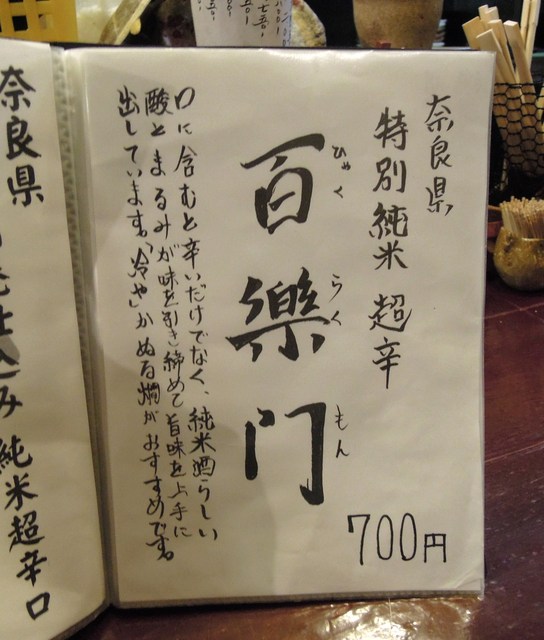 奈良県
特別純米 超辛
百樂门
ひゃく
らく
もん
700円
口に含むと辛いだけでなく、純米酒らしい
酸とまるみが味を引き締めて旨味を上手に
出しています。冷やかぬる燗がおすすめです。
奈良県
純米超辛口